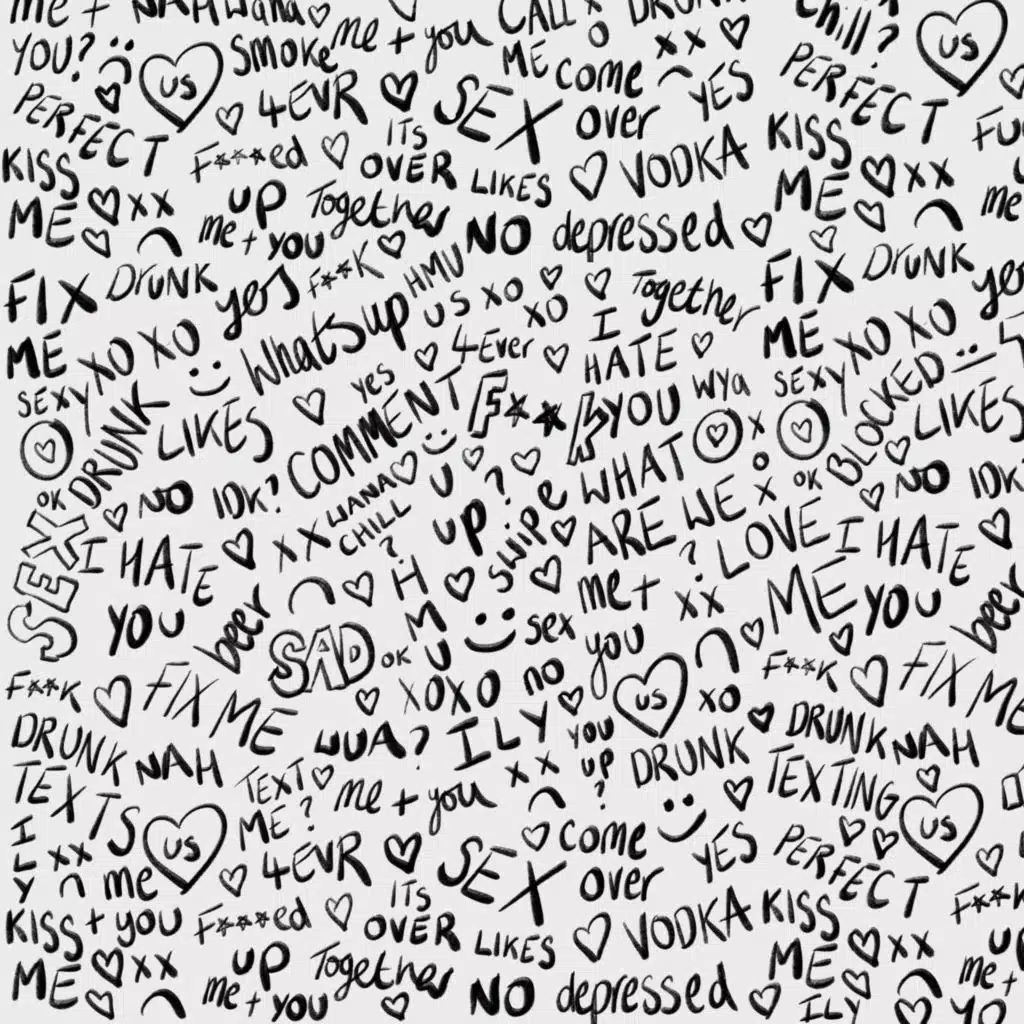 me + NAH wana CALL DRUNK chill?
YOU? US Smoke me + you ME x x US
PERFECT 4EVR SEX come over YES PERFECT
KISS ME xx F***ed ITS OVER LIKES VODKA KISS ME xx
UP Together me + YOU NO depressed
FIX ME DRUNK yes F**K HMU US XO Together FIX ME DRUNK
XO XO Whatsup 4Ever XO I HATE YOU XO XO
SEXY LIKES yes COMMENT F**K WYA SEXY BLOCKED LIKES
DRUNK x
OK NO IDK? WANA CHILL? U UP? swipe WHAT ARE WE? x OK NO IDK
SEX I HATE YOU XX HMU LOVE ME I HATE YOU
beer SAD OK sex me + you xx beer
F**K FIX ME XOXO no US XO F**K FIX ME
DRUNK TEXTS NAH WUA? ILY YOU UP? DRUNK DRUNK TEXTING NAH
TEXT ME? me + you x x
ILY xx US 4EVR SEX come over YES PERFECT US
me + you
KISS ME xx F***ed ITS OVER LIKES VODKA KISS ME xx F**K
UP Together me + YOU NO depressed ILY